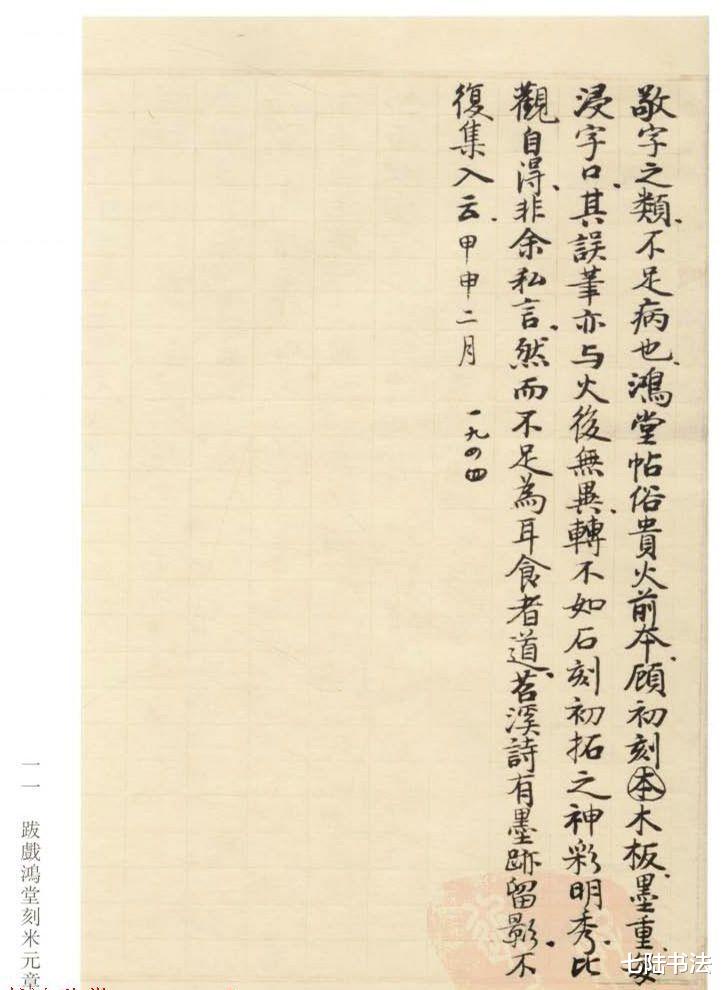 敬字之類、不足病也、鴻堂帖俗貴火前本、顧初刻本木板、墨重、
浸字口、其誤筆亦与火後無異、轉不如石刻初拓之神彩明秀、比
觀自得、非余私言、然而不足為耳食者道、苕溪詩有墨跡留影、不
復集入云、甲申二月 一九四四
一一 跋戲鴻堂刻米元章
七陆书法